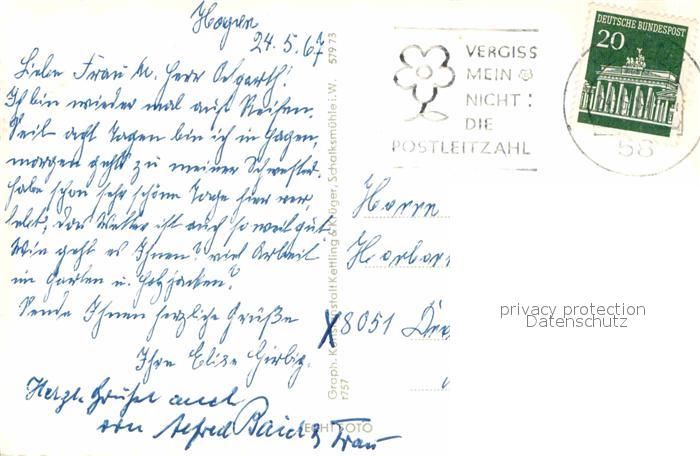 Hagen
24.5.67
Liebe Frau u. Herr
Ich bin wieder mal auf Reisen.
Seit acht Tagen bin ich in Hagen,
morgen geht's zu meiner Schwester.
habe schon sehr schöne Tage hier ver
lebt, das Wetter ist auch so weit gut
Wie geht es Ihnen? viel Arbeit
im Garten u.
Sende Ihnen herzliche Grüße
Ihre Elise
Herzl. Grüße auch
von Alfred u. Frau
57973
Graph. Kunstanstalt Kettling & Krüger, Schalksmühle i. W.
r757
ECHT FOTO
VERGISS
MEIN
NICHT:
DIE
POSTLEITZAHL
DEUTSCHE BUNDESPOST
20
58
Herrn
8051
privacy protection
Datenschutz